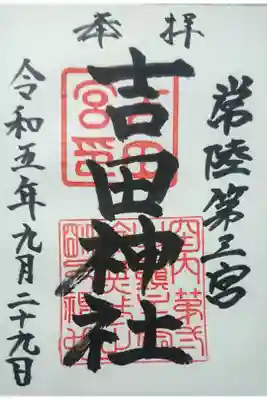 奉拝
常陸第三宮
吉田神社
令和五年九月二十九日